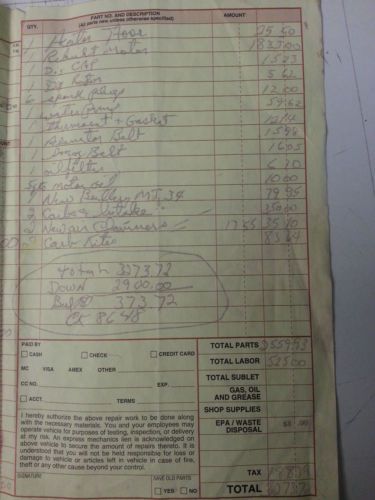 QTY. PART NO. AND DESCRIPTION AMOUNT
(All parts new unless otherwise specified)
1 25 50
1 Rebuilt Motor 1837.00
1 Dis CAP 15 23
1 Rotor 5 62
6 spark plugs 12.00
1 water Pump 59.62
1 + Gasket 12 14
1 Belt
1 Belt 16 05
1 oil filter 6
motor oil 10 00
New 79 95
2 Carbs & Intake 250 00
2 17 55 35 10
2 Carb Kits 83 64
Total 3273.72
Down 2900.00
Bal 373.72
CK 8648
PAID BY
CASH CHECK CREDIT CARD
MC VISA AMEX OTHER
CC NO. EXP.
ACCT. TERMS
I hereby authorize the above repair work to be done along
with the necessary materials. You and your employees may
operate vehicle for purposes of testing, inspection, or delivery
at my risk. An express mechanics lien is acknowledged on
above vehicle to secure the amount of repairs thereto. It is
understood that you will not be held responsible for loss or
damage to vehicle or articles left in vehicle in case of fire,
theft or any other cause beyond your control.
SIGNATURE SAVE OLD PARTS
YES NO
TOTAL PARTS
TOTAL LABOR 525 00
TOTAL SUBLET
GAS, OIL
AND GREASE
SHOP SUPPLIES
EPA / WASTE
DISPOSAL
TAX
TOTAL